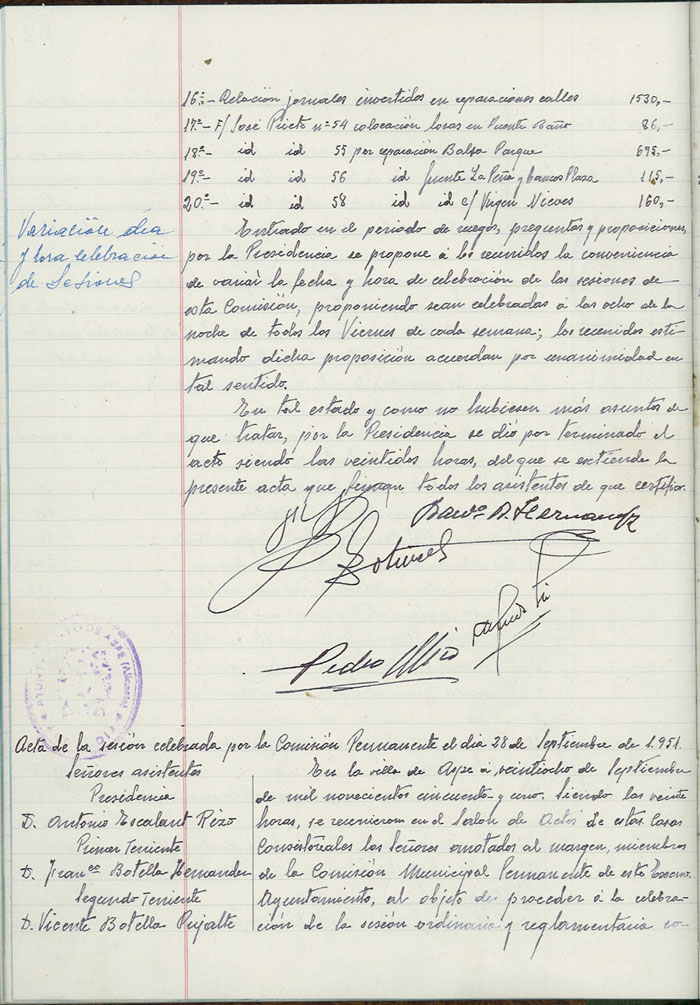 16º.- Relación jornales invertidos en reparaciones calles 1530,-
17º.- F/ José Prieto nº 54 colocación losas en Puente Baño 86,-
18º.- id id 55 por reparación Balsa Parque 695,-
19º.- id id 56 id fuente La Peña y bancos Plaza 115,-
20º.- id id 58 id id c/ Virgen Nieves 160,-
Variación día
y hora celebración
de Sesiones
Entrado en el periodo de ruegos, preguntas y proposiciones,
por la Presidencia se propone á los reunidos la conveniencia
de variar la fecha y hora de celebración de las sesiones de
esta Comisión, proponiendo sean celebradas á las ocho de la
noche de todos los Viernes de cada semana; los reunidos esti-
mando dicha proposición acuerdan por unanimidad en
tal sentido.
En tal estado y como no hubiesen más asuntos de
que tratar, por la Presidencia se dió por terminado el
acto siendo las veintidos horas, del que se extiende la
presente acta que firman todos los asistentes de que certifico.
B. Hernandez
Botella
Pedro
AYUNTAMIENTO DE ASPE (Alicante)
Acta de la sesión celebrada por la Comisión Permanente el dia 28 de Septiembre de 1.951
Señores asistentes
Presidencia
D. Antonio Escalant Rizo
Primer Teniente
D. Franco Botella Hernandez
Segundo Teniente
D. Vicente Botella Pujalte
En la villa de Aspe á veintiocho de Septiembre
de mil novecientos cincuenta y uno. Siendo las veinte
horas, se reunieron en el Salon de Actos de estas Casas
Consistoriales los Señores anotados al margen, miembros
de la Comisión Municipal Permanente de este Excmo.
Ayuntamiento, al objeto de proceder á la celebra-
ción de la sesión ordinaria y reglamentaria co-